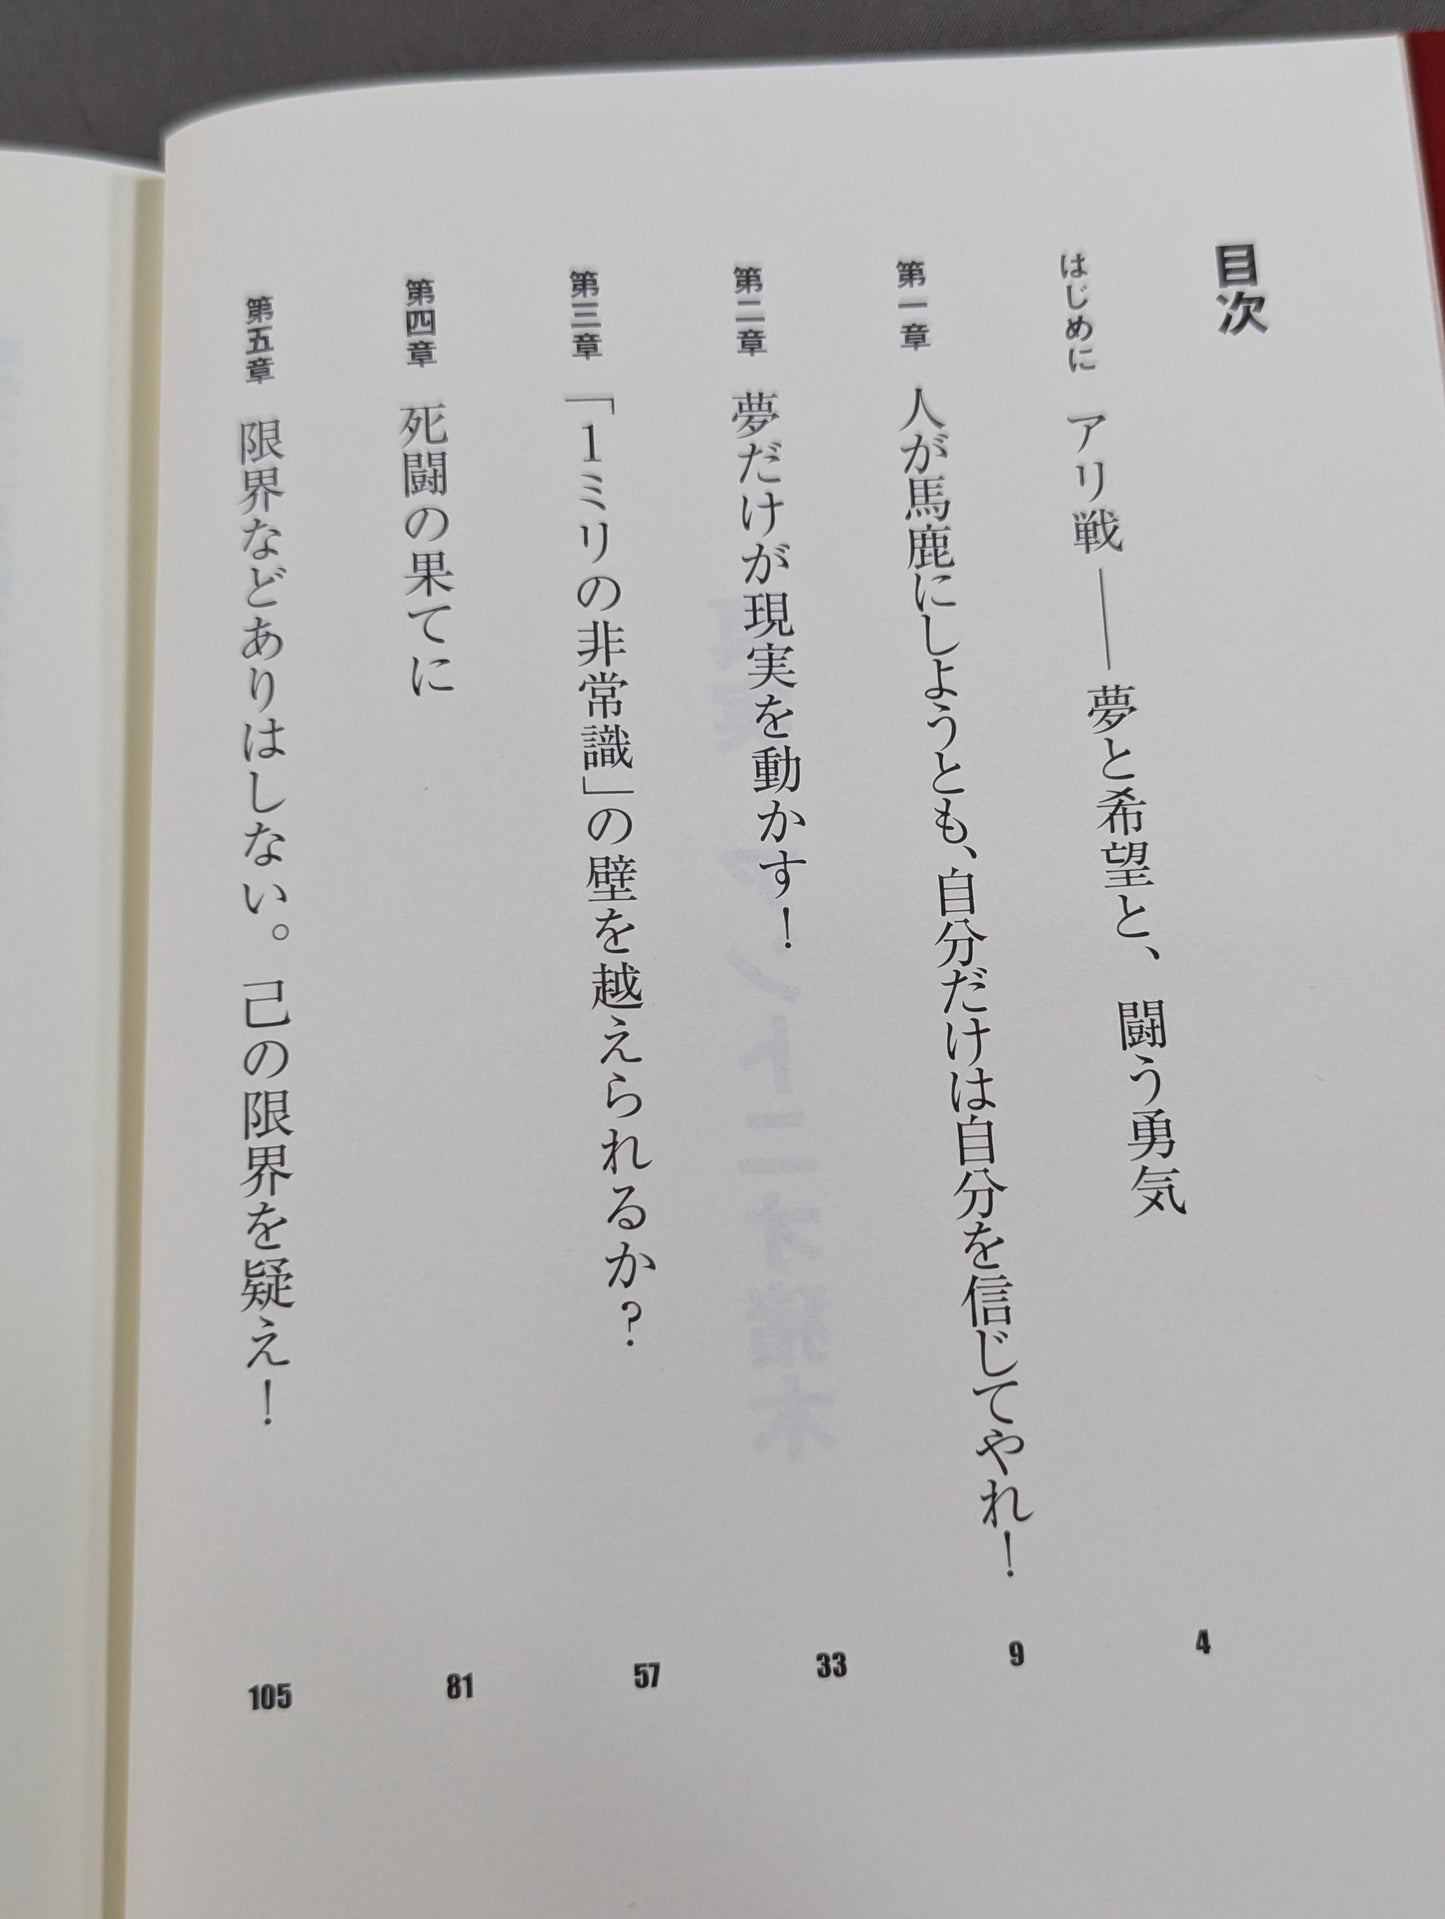 目次
はじめに アリ戦――夢と希望と、闘う勇気 4
第一章 人が馬鹿にしようとも、自分だけは自分を信じてやれ！ 9
第二章 夢だけが現実を動かす！ 33
第三章 「1ミリの非常識」の壁を越えられるか？ 57
第四章 死闘の果てに 81
第五章 限界などありはしない。己の限界を疑え！ 105